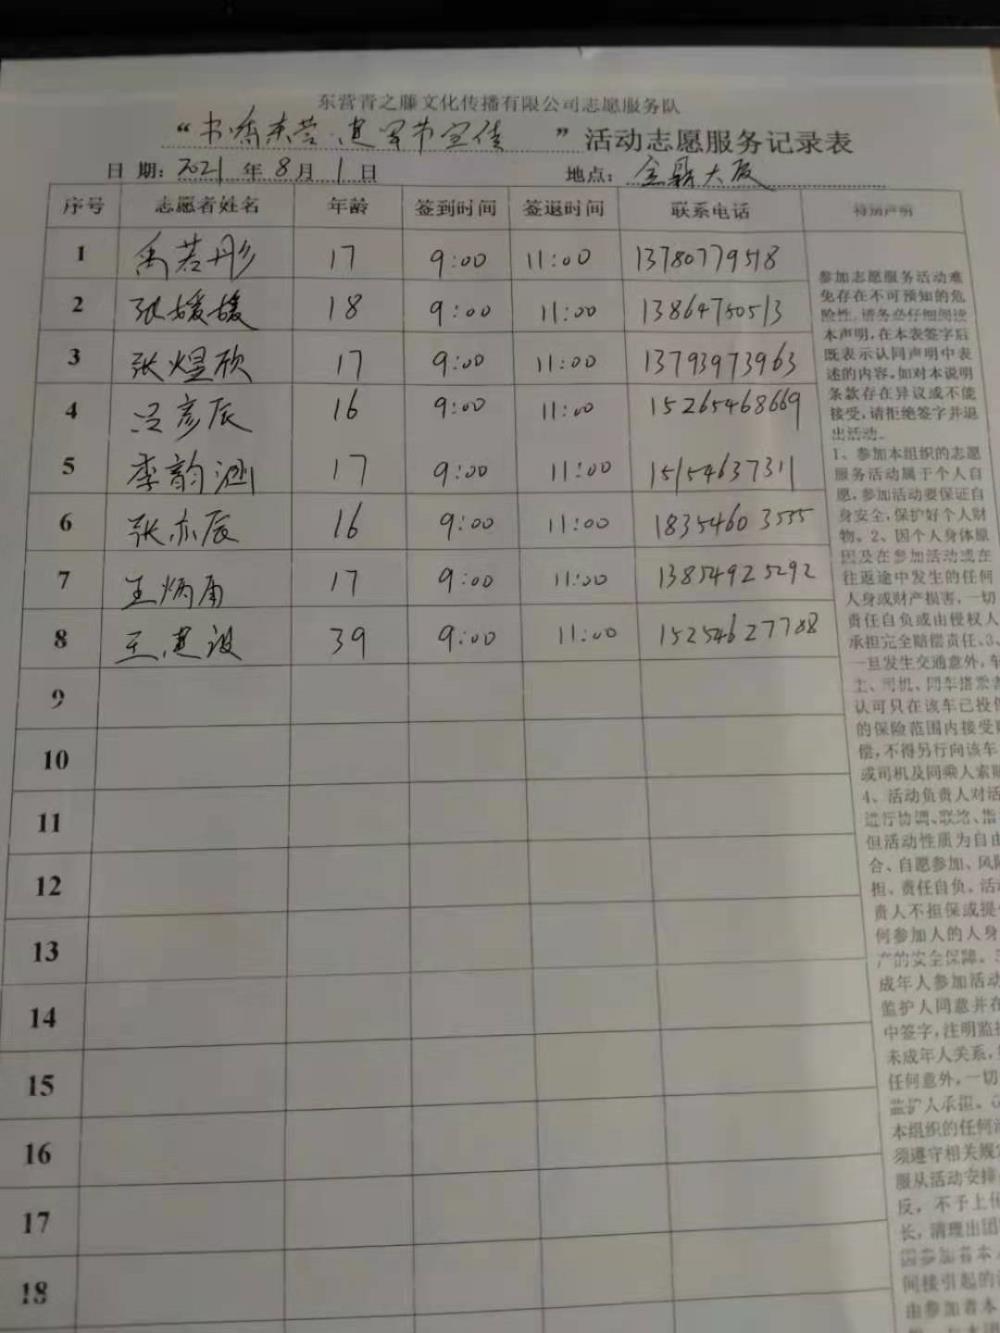 东营青之藤文化传播有限公司志愿服务队
“书香东营·建军节宣传”活动志愿服务记录表
日 期: 2021 年 8 月 1 日 地点: 金鼎大厦
序号 志愿者姓名 年龄 签到时间 签退时间 联系电话 特别声明
1 禹若彤 17 9:00 11:00 13780779518
2 张媛媛 18 9:00 11:00 13864750513
3 张煜欣 17 9:00 11:00 13793973963
4 吕彦辰 16 9:00 11:00 15265468669
5 李韵涵 17 9:00 11:00 15154637311
6 张亦辰 16 9:00 11:00 18354603555
7 王炳南 17 9:00 11:00 13854925292
8 王建波 39 9:00 11:00 15254627788
9
10
11
12
13
14
15
16
17
18
参加志愿服务活动难
免存在不可预知的危
险性,请务必仔细阅读
本声明,在本表签字后
既表示认同声明中表
述的内容,如对本说明
条款存在异议或不能
接受,请拒绝签字并退
出活动。
1、参加本组织的志愿
服务活动属于个人自
愿,参加活动要保证自
身安全,保护好个人财
物。2、因个人身体原
因及在参加活动或在
往返途中发生的任何
人身或财产损害,一切
责任自负或由侵权人
承担完全赔偿责任。3、
一旦发生交通意外,车
主、司机、同车搭乘者
认可只在该车已投保
的保险范围内接受赔
偿,不得另行向该车
或司机及同乘人索赔
4、活动负责人对活
进行协调、联络、指
但活动性质为自由
合、自愿参加、风险
担、责任自负。活动
责人不担保或提供
何参加人的人身
产的安全保障。
成年人参加活动
监护人同意并在
中签字,注明监护
未成年人关系,
任何意外,一切
监护人承担。
本组织的任何活
须遵守相关规定
服从活动安排
反,不予上传
长,清理出团
因参加者本人
间接引起的
由参加者本